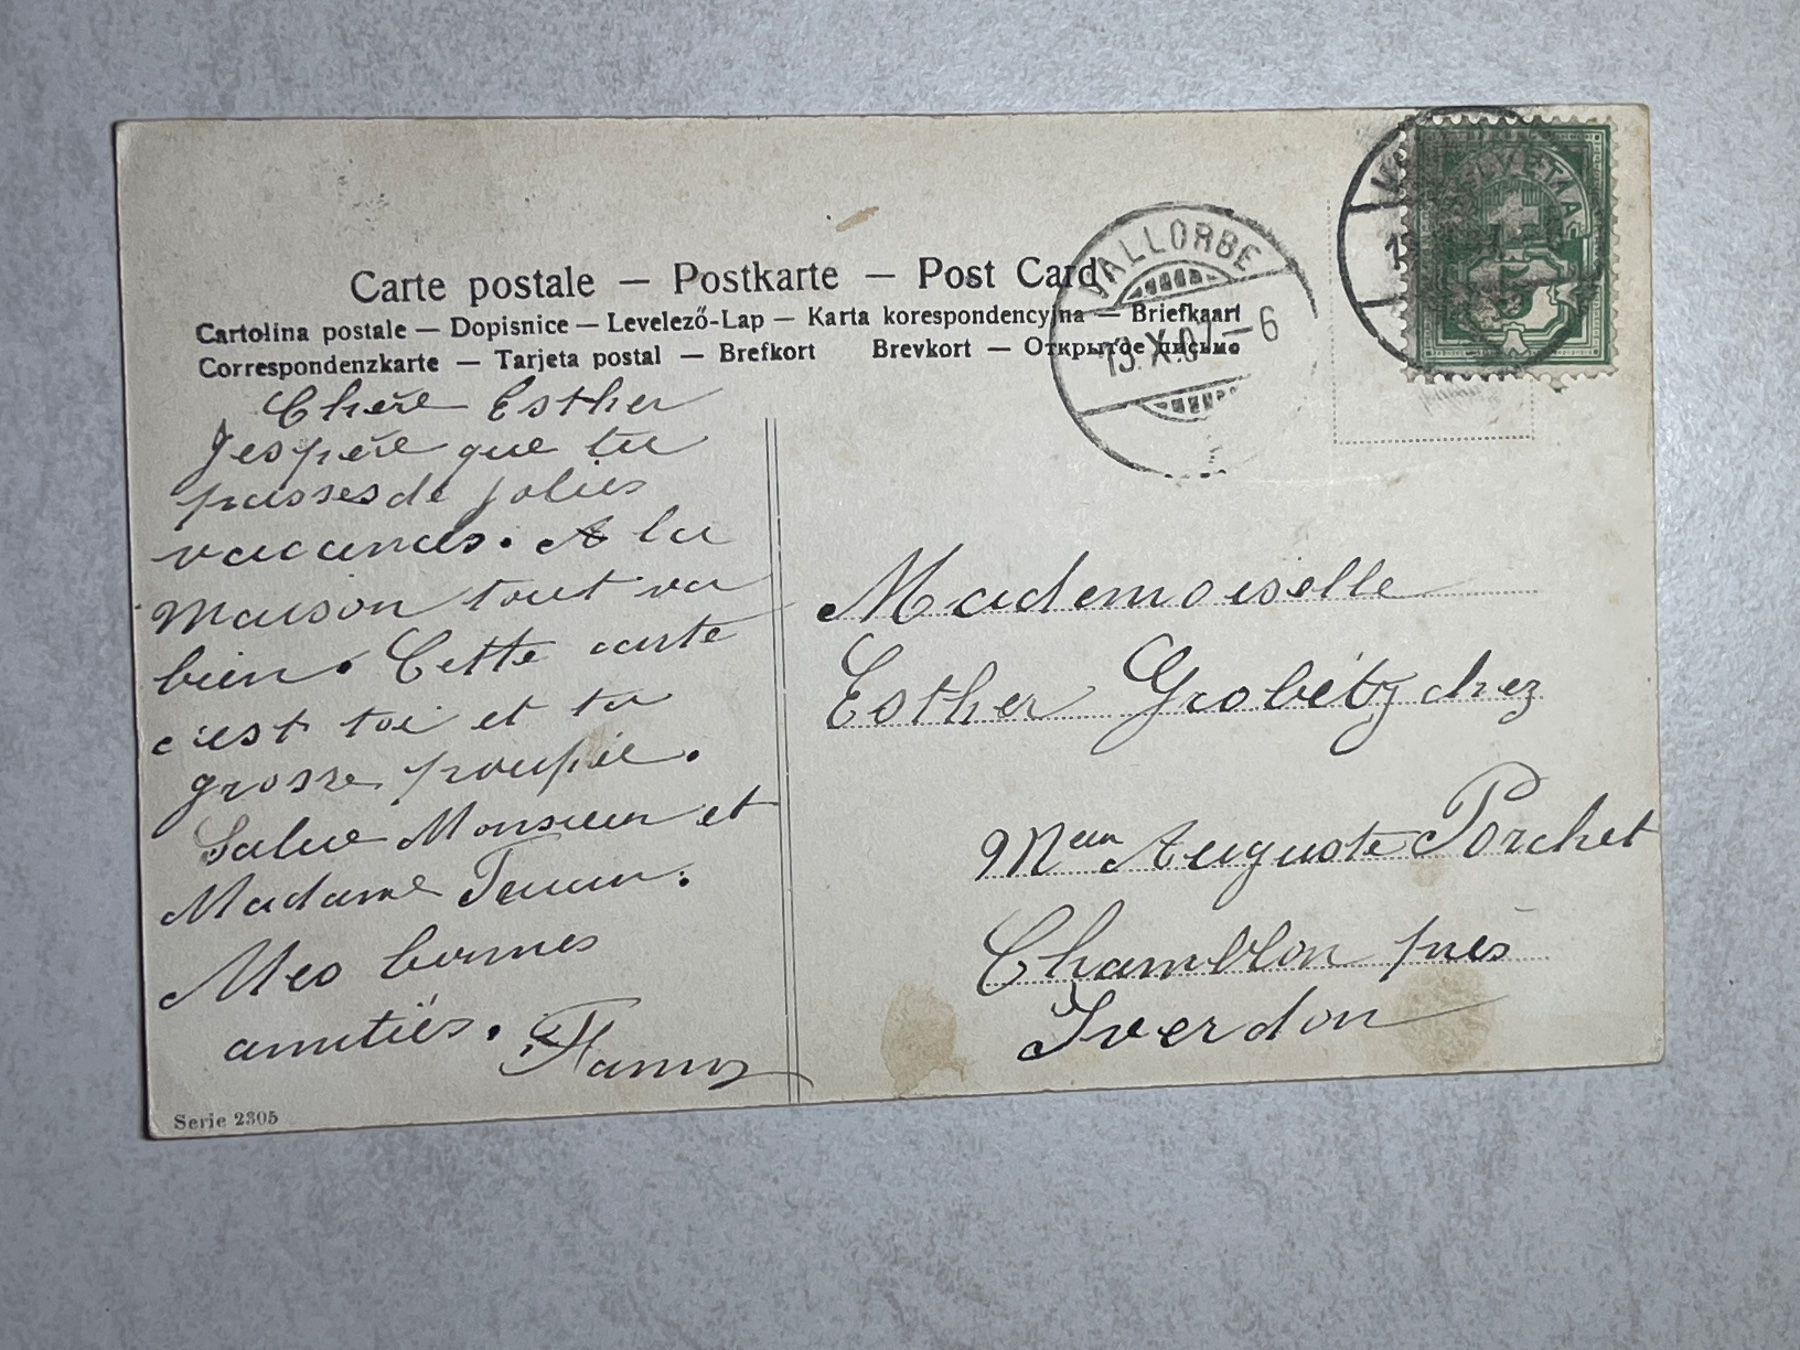 Carte postale — Postkarte — Post Card
Cartolina postale — Dopisnice — Levelező-Lap — Karta korespondencyjna — Briefkaart
Correspondenzkarte — Tarjeta postal — Brefkort Brevkort — Открытое письмо
VALLORBE
13.X.07–6
HELVETIA
5
Chère Esther
J'espère que tu
passes de jolies
vacances. A la
maison tout va
bien. Cette carte
c'est toi et ta
grosse poupée.
Salue Monsieur et
Madame
Mes bonnes
amitiés. Fanny
Serie 2305
Mademoiselle
Esther Grobéty chez
Auguste Porchet
Chamblon près
Yverdon